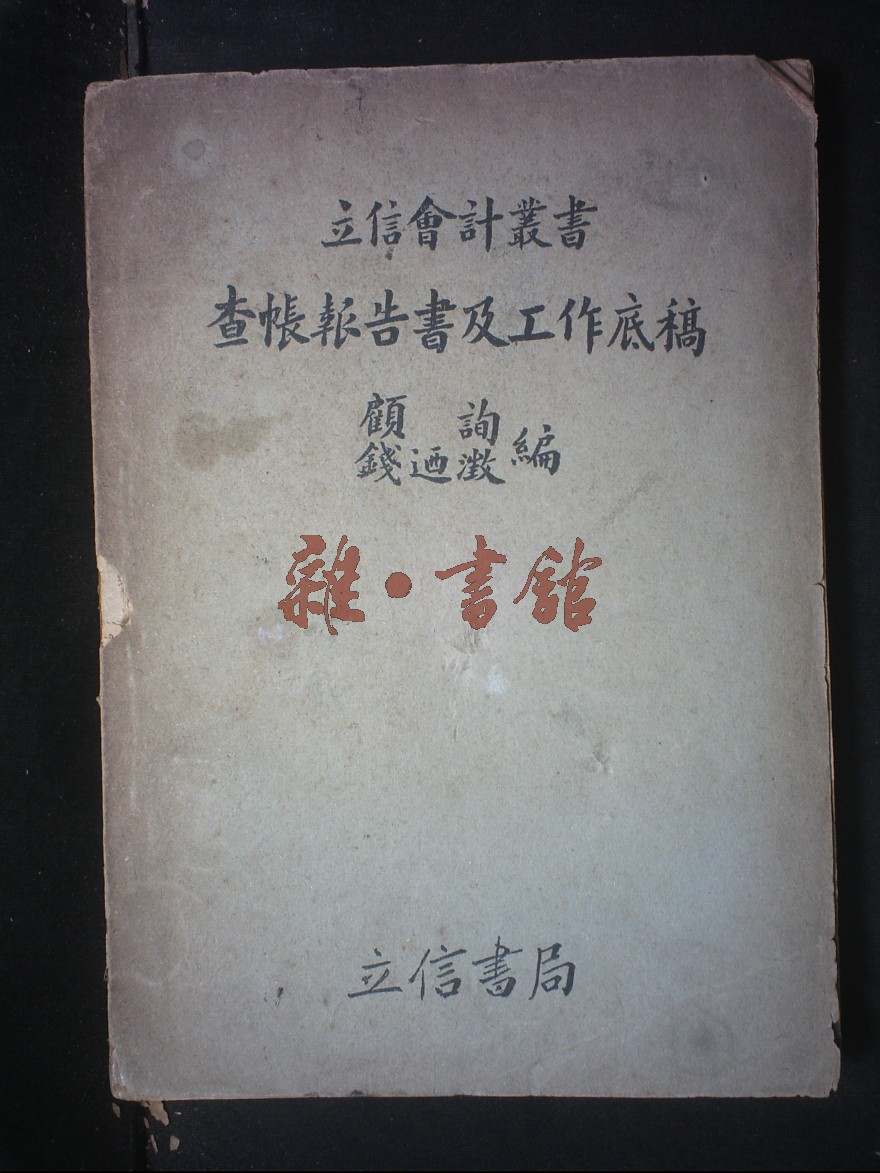 立信會計叢書
查帳報告書及工作底稿
顧 詢
錢迺澂 編
雜·書館
立信書局